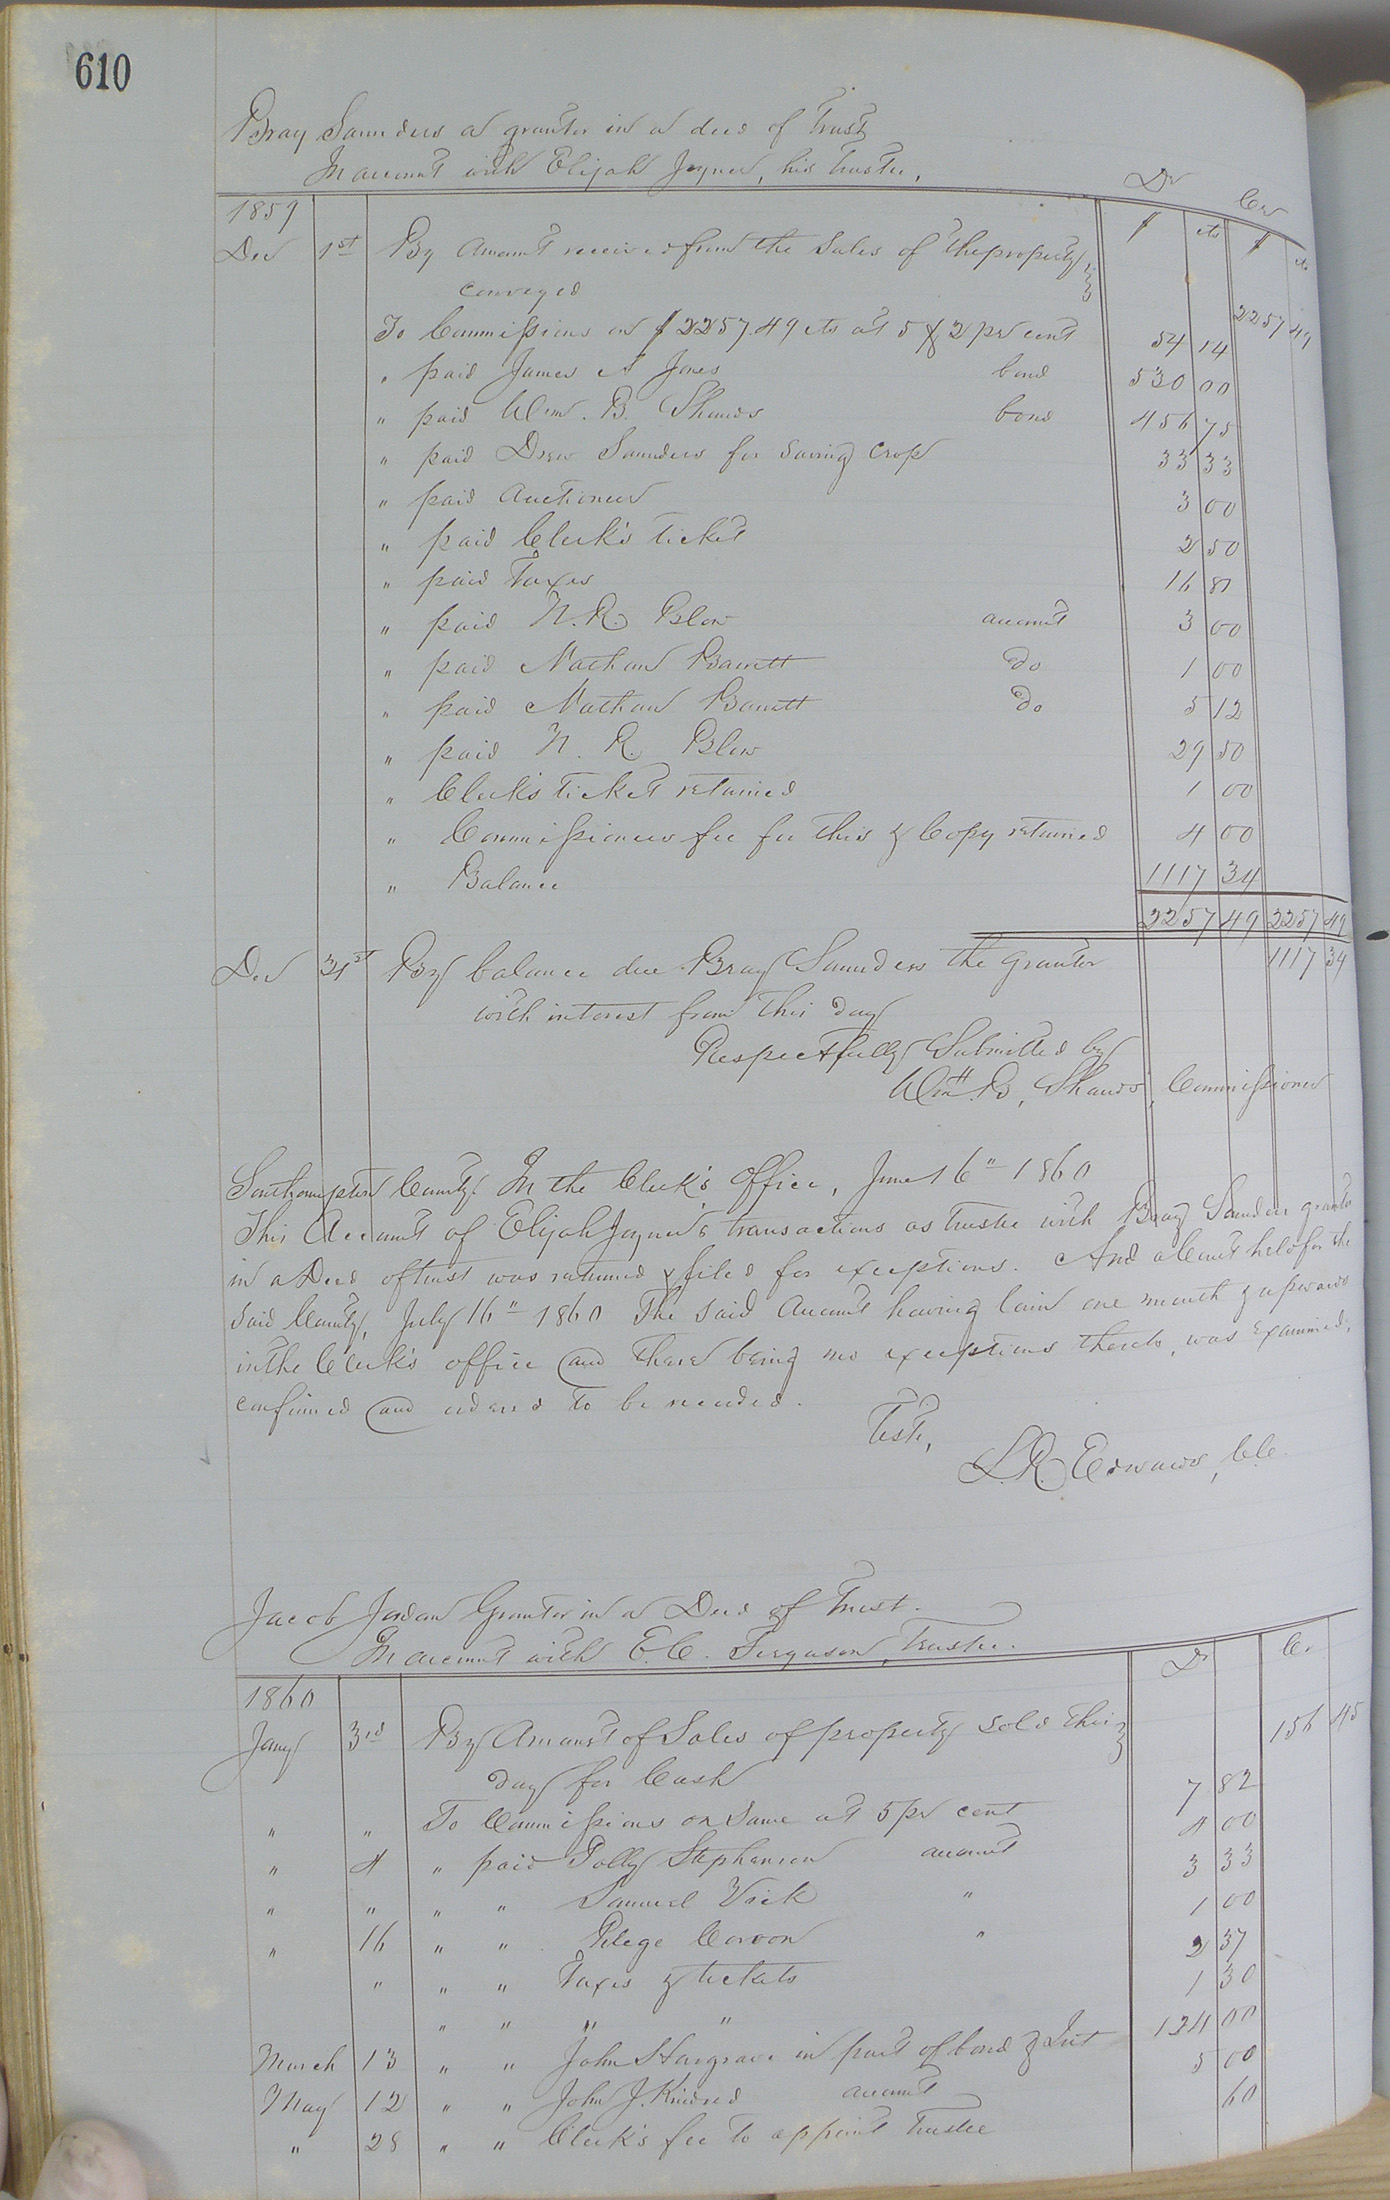 610
Bray Saunders a grantor in a deed of Trust
In account with Elijah Joyner, his trustee,
Dr Cr
1859 $ cts $ cts
Dec 1st By Amount received from the Sales of the property
conveyed 2257 49
To Commissions on $2257.49 cts at 5 & 2 pr cent 54 14
" paid James A Jones bond 530 00
" paid Wm. B. Shands bond 456 75
" paid Drew Saunders for saving crop 33 33
" paid Auctioneer 3 00
" paid Clerk's ticket 2 50
" paid Taxes 16 81
" paid N. R. Blow account 3 00
" paid Nathan Barrett do 1 00
" paid Nathan Barrett do 5 12
" paid N. R. Blow 29 50
" Clerk's ticket returned 1 00
" Commissioners fee for this & Copy returned 4 00
" Balance 1117 34
2257 49 2257 49
Dec 31st By balance due Bray Saunders the grantor 1117 34
with interest from this day
Respectfully Submitted by
Wm. B, Shands, Commissioner
Southampton County: In the Clerk's Office, June 16" 1860
This Account of Elijah Joyner's transactions as trustee with Bray Saunders grantor
in a Deed of trust was returned & filed for exceptions. And a Court held for the
said County, July 16" 1860 The said Account having lain one month & upwards
in the Clerk's office and there being no exceptions thereto, was examined,
confirmed and ordered to be recorded.
Teste,
L. R. Edwards, C.C.
Jacob Jordan Grantor in a Deed of Trust.
In account with E. C. Ferguson, Trustee.
Dr Cr
1860
Jany 3rd By Amount of Sales of property sold this 156 45
day for Cash
" " To Commissions on Same at 5 pr cent 7 82
" 4 " paid Polly Stephenson account 4 00
" " " " Samuel Vick " 3 33
" 16 " " " 1 00
" " " Taxes & tickets 2 37
" " " " 1 30
March 13 " " John Hargrave in part of bond & Int 124 00
May 12 " " John J. Kindred account 5 00
" 28 " " Clerk's fee to appoint Trustee 60